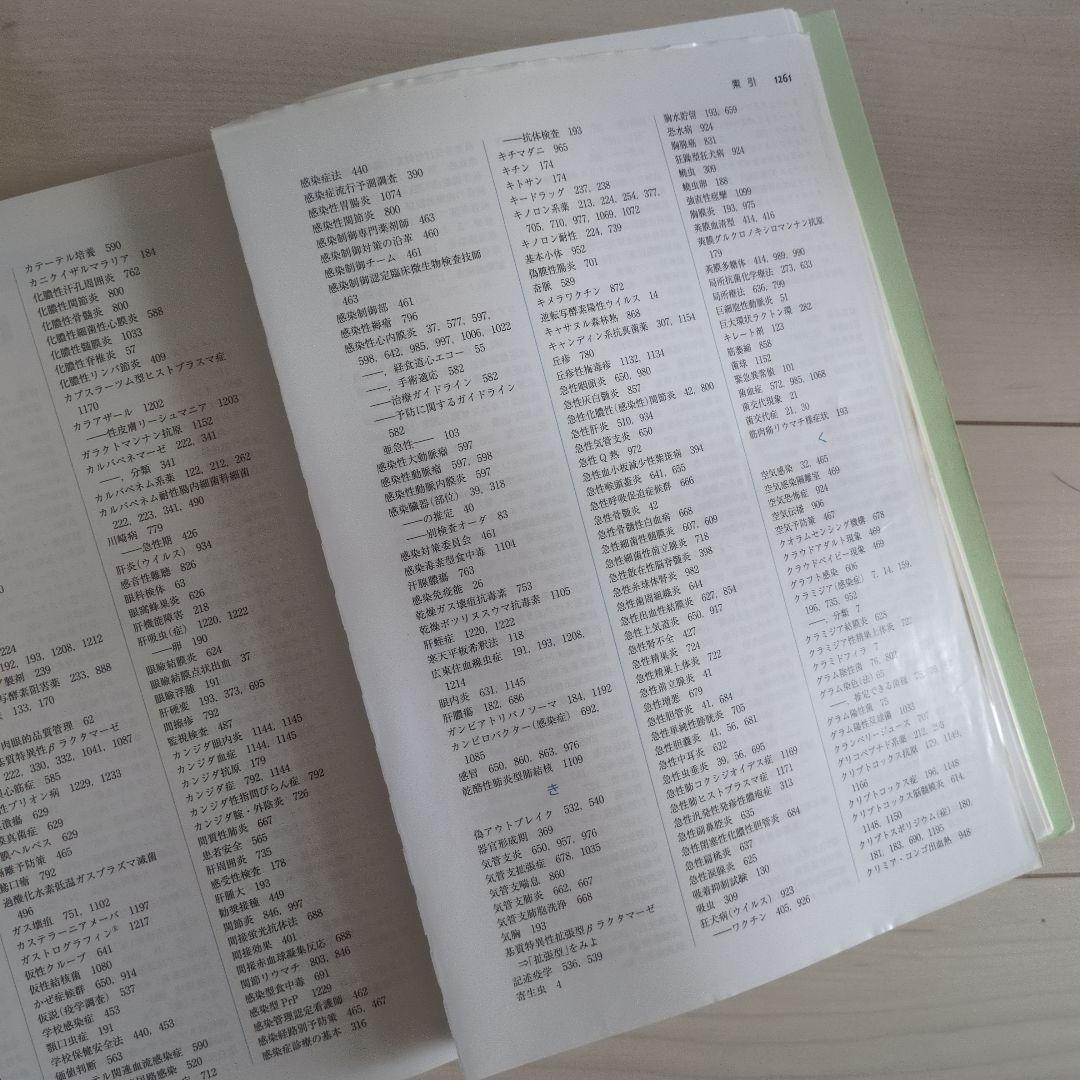 224
192, 193, 1208, 1212
製剤 239
写酵素阻害薬 233, 888
133, 170
内眼的品質管理 62
基質特異性βラクタマーゼ
222, 330, 332, 1041, 1087
心筋症 585
性プリオン病 1229, 1233
潰瘍 629
真菌症 629
膜ヘルペス 629
離予防策 465
瘡口瘡 792
過酸化水素低温ガスプラズマ滅菌
496
ガス壊疽 751, 1102
カステラーニアメーバ 1197
ガストログラフィン® 1217
仮性クループ 641
仮性結核菌 1080
かぜ症候群 650, 914
仮説(疫学調査) 537
学校感染症 453
顎口虫症 191
学校保健安全法 440, 453
価値判断 563
テル関連血流感染症 590
尿路感染 520
712
カテーテル培養 590
カニクイザルマラリア 184
化膿性汗孔周囲炎 762
化膿性関節炎 800
化膿性骨髄炎 800
化膿性細菌性心膜炎 588
化膿性髄膜炎 1033
化膿性脊椎炎 57
化膿性リンパ節炎 409
カプスラーツム型ヒストプラスマ症
1170
カラアザール 1202
──性皮膚リーシュマニア 1203
ガラクトマンナン抗原 1152
カルバペネマーゼ 222, 341
──, 分類 341
カルバペネム系薬 122, 212, 262
カルバペネム耐性腸内細菌科細菌
222, 223, 341, 490
川崎病 779
──急性期 426
肝炎(ウイルス) 934
感音性難聴 826
眼科検体 63
眼窩蜂巣炎 626
肝機能障害 218
肝吸虫(症) 1220, 1222
──卵 190
眼瞼結膜炎 624
眼瞼結膜点状出血 37
眼瞼浮腫 191
肝硬変 193, 373, 695
間擦疹 792
監視検査 487
カンジダ眼内炎 1144, 1145
カンジダ血症 1144, 1145
カンジダ抗原 179
カンジダ症 792, 1144
カンジダ性指間びらん症 792
カンジダ腟・外陰炎 726
間質性肺炎 667
患者安全 565
肝周囲炎 735
感受性検査 178
肝腫大 193
勧奨接種 449
関節炎 846, 997
間接蛍光抗体法 688
間接効果 401
間接赤血球凝集反応 688
関節リウマチ 803, 846
感染型食中毒 691
感染型PrP 1229
感染管理認定看護師 462
感染経路別予防策 465, 467
感染症診療の基本 316
索引 1261
感染症法 440
感染症流行予測調査 390
感染性胃腸炎 1074
感染性関節炎 800
感染制御専門薬剤師 463
感染制御対策の沿革 460
感染制御チーム 461
感染制御認定臨床微生物検査技師
463
感染制御部 461
感染性梅瘡 796
感染性心内膜炎 37, 577, 597,
598, 642, 985, 997, 1006, 1022
──, 経食道心エコー 55
──, 手術適応 582
──治療ガイドライン 582
──予防に関するガイドライン
582
亜急性── 103
感染性大動脈瘤 597
感染性動脈瘤 597, 598
感染性動脈内膜炎 597
感染臓器(部位) 39, 318
──の推定 40
──別検査オーダ 83
感染対策委員会 461
感染毒素型食中毒 1104
汗腺膿瘍 763
感染免疫能 26
乾燥ガス壊疽抗毒素 753
乾燥ボツリヌスウマ抗毒素 1105
肝蛭症 1220, 1222
寒天平板希釈法 118
広東住血線虫症 191, 193, 1208,
1214
眼内炎 631, 1145
肝膿瘍 182, 686
ガンビアトリパノソーマ 184, 1192
カンピロバクター(感染症) 692,
1085
感冒 650, 860, 863, 976
乾酪性肺炎型肺結核 1109
き
偽アウトブレイク 532, 540
器官形成期 369
気管支炎 650, 957, 976
気管支拡張症 678, 1035
気管支喘息 860
気管支肺炎 662, 667
気管支肺胞洗浄 668
気胸 193
基質特異性拡張型βラクタマーゼ
⇒「拡張型」をみよ
記述疫学 536, 539
寄生虫 4
──抗体検査 193
キチマダニ 965
キチン 174
キトサン 174
キードラッグ 237, 238
キノロン系薬 213, 224, 254, 377,
705, 710, 977, 1069, 1072
キノロン耐性 224, 739
基本小体 952
偽膜性腸炎 701
奇脈 589
キメラワクチン 872
逆転写酵素陽性ウイルス 14
キャサヌル森林熱 868
キャンディン系抗真菌薬 307, 1154
丘疹 780
丘疹性梅毒疹 1132, 1134
急性咽頭炎 650, 980
急性灰白髄炎 857
急性化膿性(感染性)関節炎 42, 800
急性肝炎 510, 934
急性気管支炎 650
急性Q熱 972
急性血小板減少性紫斑病 394
急性喉頭蓋炎 641, 655
急性呼吸促迫症候群 666
急性骨髄炎 42
急性骨髄性白血病 668
急性細菌性髄膜炎 607, 609
急性細菌性前立腺炎 718
急性散在性脳脊髄炎 398
急性糸球体腎炎 982
急性歯周組織炎 644
急性出血性結膜炎 627, 854
急性上気道炎 650, 917
急性腎不全 427
急性精巣炎 724
急性精巣上体炎 722
急性前立腺炎 41
急性増悪 679
急性胆管炎 41, 684
急性単純性膀胱炎 705
急性胆嚢炎 41, 56, 681
急性中耳炎 632
急性虫垂炎 39, 56, 695
急性肺コクシジオイデス症 1169
急性肺ヒストプラスマ症 1171
急性汎発性発疹性膿疱症 313
急性副鼻腔炎 635
急性閉塞性化膿性胆管炎 684
急性扁桃炎 637
急性涙腺炎 625
吸着抑制試験 130
吸虫 309
狂犬病(ウイルス) 923
──ワクチン 405, 926
胸水貯留 193, 659
恐水病 924
胸腺癌 831
狂躁型狂犬病 924
蟯虫 309
蟯虫卵 188
強直性痙攣 1099
胸膜炎 193, 975
莢膜血清型 414, 416
莢膜グルクロノキシロマンナン抗原
179
莢膜多糖体 414, 989, 990
局所抗菌化学療法 273, 633
局所療法 636, 799
巨細胞性動脈炎 51
巨大環状ラクトン環 282
キレート剤 123
筋萎縮 858
菌球 1152
緊急異常値 101
菌血症 572, 985, 1068
菌交代現象 21
菌交代症 21, 30
筋肉痛リウマチ様症状 193
く
空気感染 32, 465
空気感染隔離室 469
空気恐怖症 924
空気伝播 906
空気予防策 467
クオラムセンシング機構 678
クラウドアダルト現象 469
クラウドベイビー現象 469
グラフト感染 606
クラミジア(感染症) 7, 14, 159,
196, 735, 952
──, 分類 7
クラミジア結膜炎 628
クラミジア性精巣上体炎
クラミドフィラ 7
グラム陰性菌 76,
グラム染色(法) 65
──, 推定できる菌種
グラム陽性菌 75
グラム陽性双球菌 1033
クランベリージュース 707
グリコペプチド系薬 212,
クリプトコックス抗原 179, 1149,
1166
クリプトコックス症 196, 1148
クリプトコックス脳髄膜炎 614,
1148, 1150
クリプトスポリジウム(症) 180,
181, 183, 690, 1195
クリミア・コンゴ出血熱 948